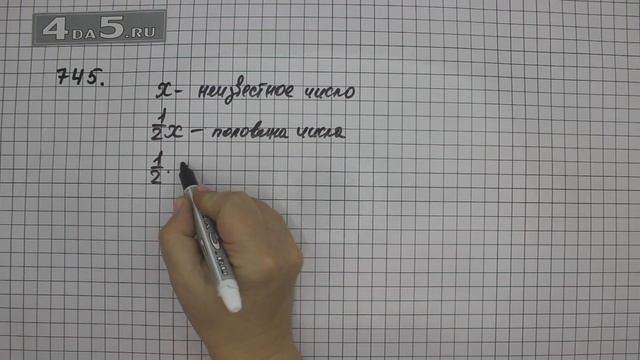 4 ДА 5.RU
745.
x - неизвестное число
1/2 x - половина числа
1/2 ·